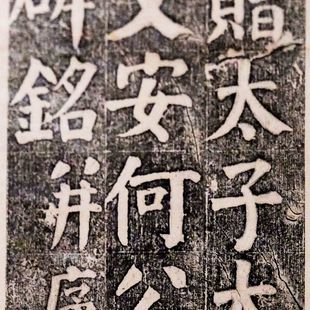 贈太子太
文安何公
碑銘并序